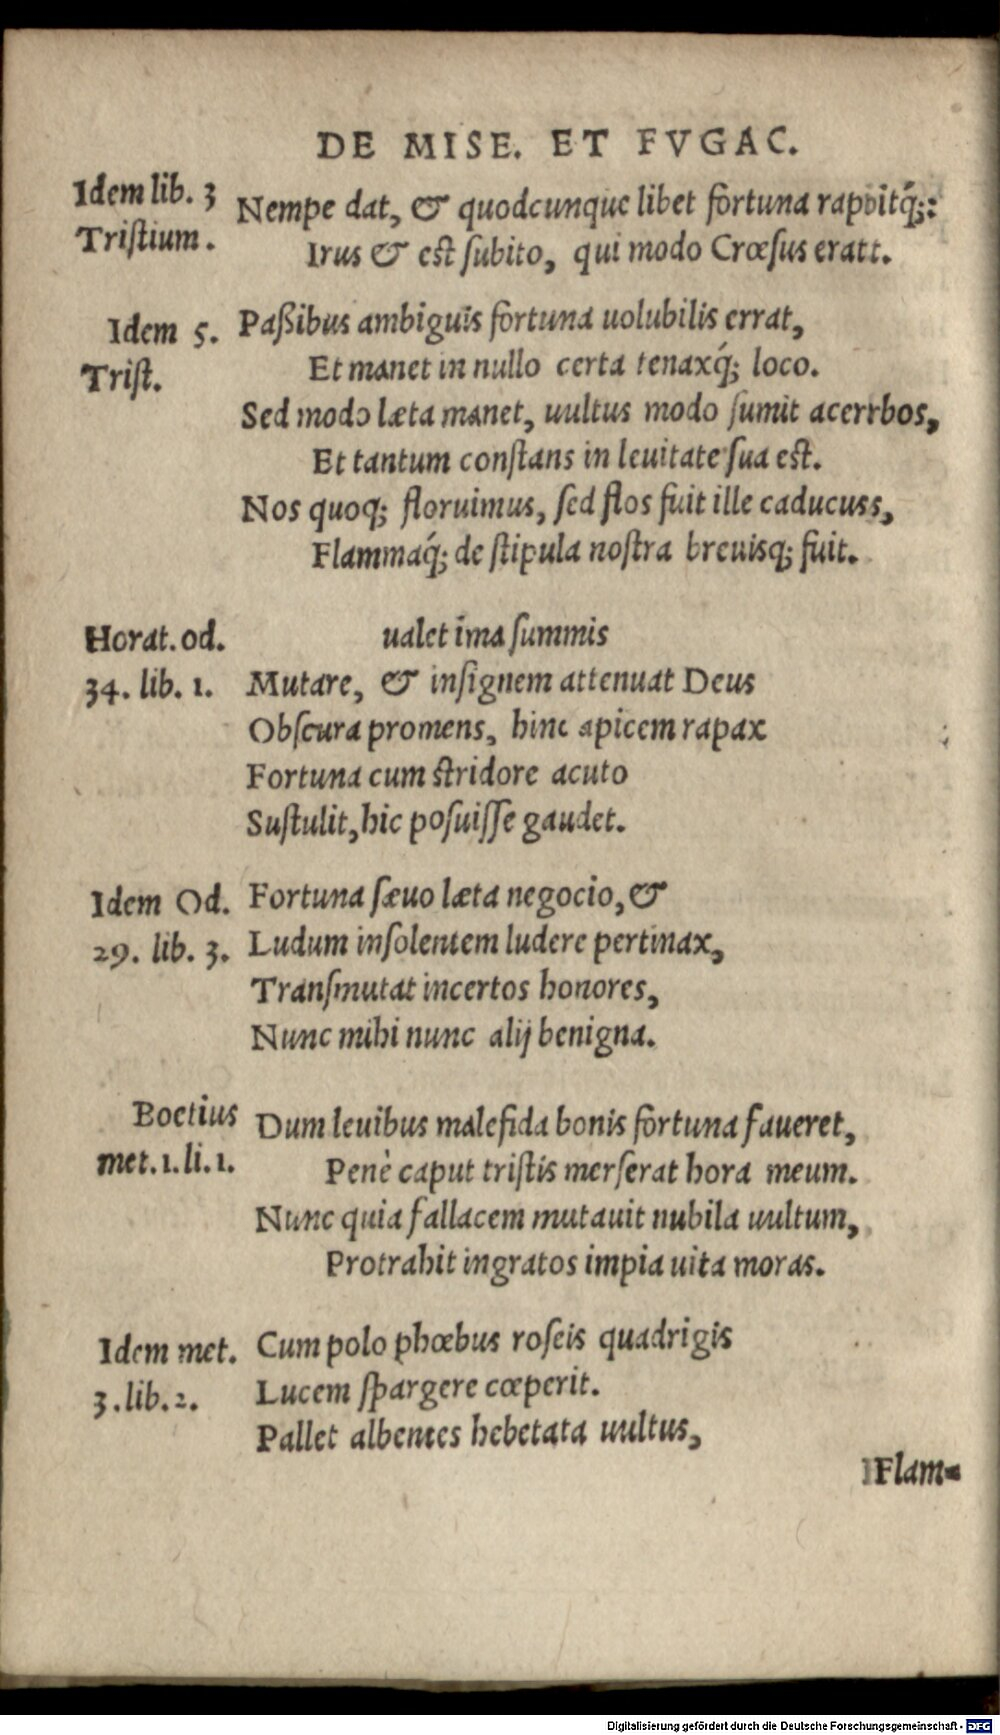 DE MISE. ET FVGAC.
Idem lib. 3
Tristium.
Nempe dat, & quodcunque libet fortuna rapoitq́;:
Irus & est subito, qui modo Crœsus eratt.
Idem 5.
Trist.
Paßibus ambiguis fortuna uolubilis errat,
Et manet in nullo certa tenaxq́; loco.
Sed modo læta manet, uultus modo sumit acerrbos,
Et tantum constans in leuitate sua est.
Nos quoq; floruimus, sed flos fuit ille caducuss,
Flammaq́; de stipula nostra breuisq; fuit.
Horat. od.
34. lib. 1.
ualet ima summis
Mutare, & insignem attenuat Deus
Obscura promens, hinc apicem rapax
Fortuna cum stridore acuto
Sustulit, hic posuisse gaudet.
Idem Od.
29. lib. 3.
Fortuna sæuo læta negocio, &
Ludum insolentem ludere pertinax,
Transmutat incertos honores,
Nunc mihi nunc alij benigna.
Boetius
met. 1. li. 1.
Dum leuibus malefida bonis fortuna faueret,
Penè caput tristis merserat hora meum.
Nunc quia fallacem mutauit nubila uultum,
Protrahit ingratos impia uita moras.
Idem met.
3. lib. 2.
Cum polo phœbus roseis quadrigis
Lucem spargere cœperit.
Pallet albentes hebetata uultus,
Flam-
Digitalisierung gefördert durch die Deutsche Forschungsgemeinschaft - DFG